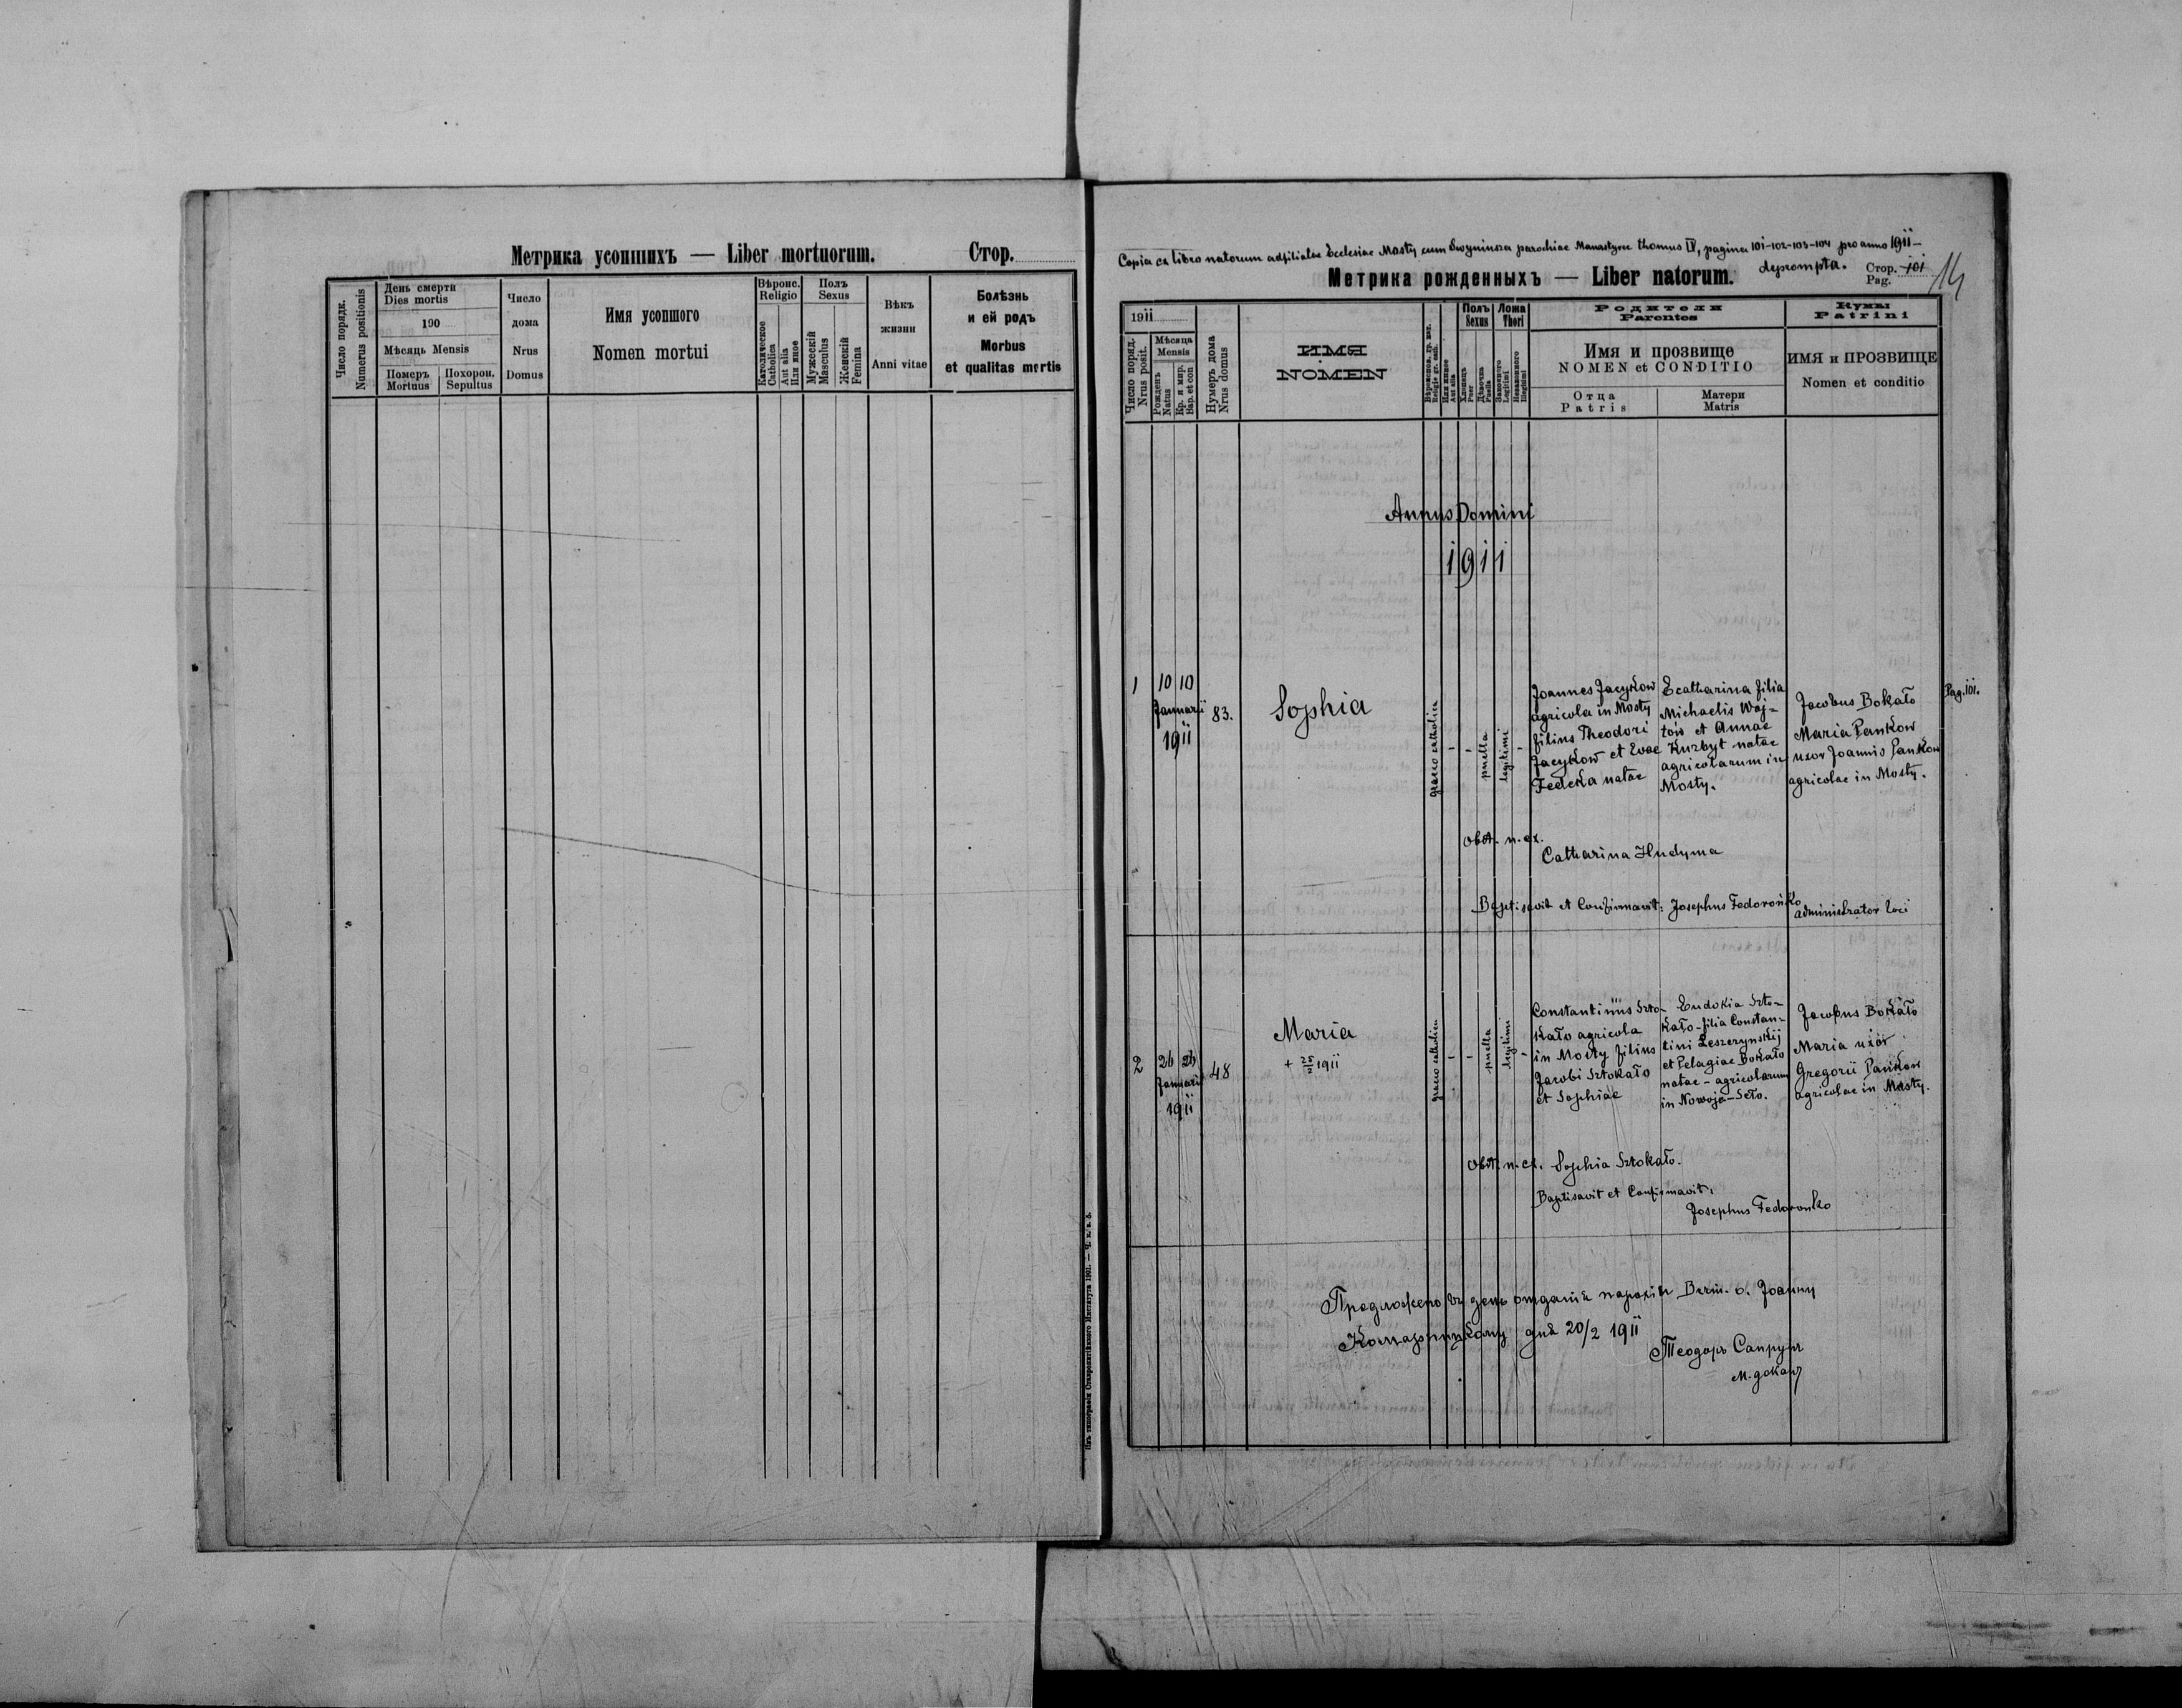 Метрика усопшихъ — Liber mortuorum. Стор.
Число порядк.
Numerus positionis
День смерти
Dies mortis
190
Мѣсяць Mensis
Померъ
Mortuus
Похорон.
Sepultus
Число
дома
Nrus
Domus
Имя усопшого
Nomen mortui
Вѣроис.
Religio
Католическое
Catholica
Aut alia
Или иное
Полъ
Sexus
Мужескій
Masculus
Женскій
Femina
Вѣкъ
жизни
Anni vitae
Болѣзнь
и ей родъ
Morbus
et qualitas mortis
Изъ типографіи Ставропигійского Института 1901. — Ч. к. в. б.
Copia ex libro natorum adfilialae Ecclesiae Mosty cum parochiae Manastyrec thomus IV, pagina 101-102-103-104 pro anno 1911 -
deprompta.
Метрика рожденныхъ — Liber natorum.
Стор. 101
Pag.
14
1911
Число поряд.
Nrus posit.
Мѣсяца
Mensis
Рожденъ
Natus
Кр. и мир.
Bap. et con
Нумеръ дома
Nrus domus
ИМЯ
NOMEN
Вѣроиспов. гр. кат.
Religio gr. cath.
Или иное
Aut alia
Полъ
Sexus
Хлопець
Puer
Дѣвочка
Puella
Ложа
Thori
Законного
Legitimi
Незаконного
Illegitimi
Родители
Parentes
Имя и прозвище
NOMEN et CONDITIO
Отца
Patris
Матери
Matris
Кумы
Patrini
ИМЯ и ПРОЗВИЩЕ
Nomen et conditio
Annus Domini
1911
1
10 10
Januarii
1911
83.
Sophia
graeco catholica
-
-
puella
legitimi
-
Joannes Jacykow
agricola in Mosty
filius Theodori
Jacykow et Evae
Fedeka natae
Ecatharina filia
Michaelis Woj-
tois et Annae
Kurbyt natae
agricolarum in
Mosty.
Jacobus Bokało
Maria Pankow
uxor Joannis Pankow
agricolae in Mosty.
Pag. 101.
Obst. n. ex.
Catharina Hudyma
Baptisavit et Confirmavit: Josephus Fedorońko
administrator loci
2
26 26
Januarii
1911
48
Maria
+ 25/2 1911
graeco catholica
-
-
puella
legitimi
-
Constantinus Szto-
kało agricola
in Mosty filius
Jacobi Sztokało
et Sophiae
Eudokia Szto-
kało - filia Constan-
tini Leszczynskij
et Pelagiae Bokało
natae - agricolarum
in Nowoje-Seło.
Jacobus Bokało
Maria uxor
Gregorii Pankow
agricolae in Mosty.
Obst. n. ex. Sophia Sztokało.
Baptisavit et Confirmavit:
Josephus Fedorońko
Предложено въ день отданія парохіи о. Іоанну
дня 20/2 1911
Теодоръ